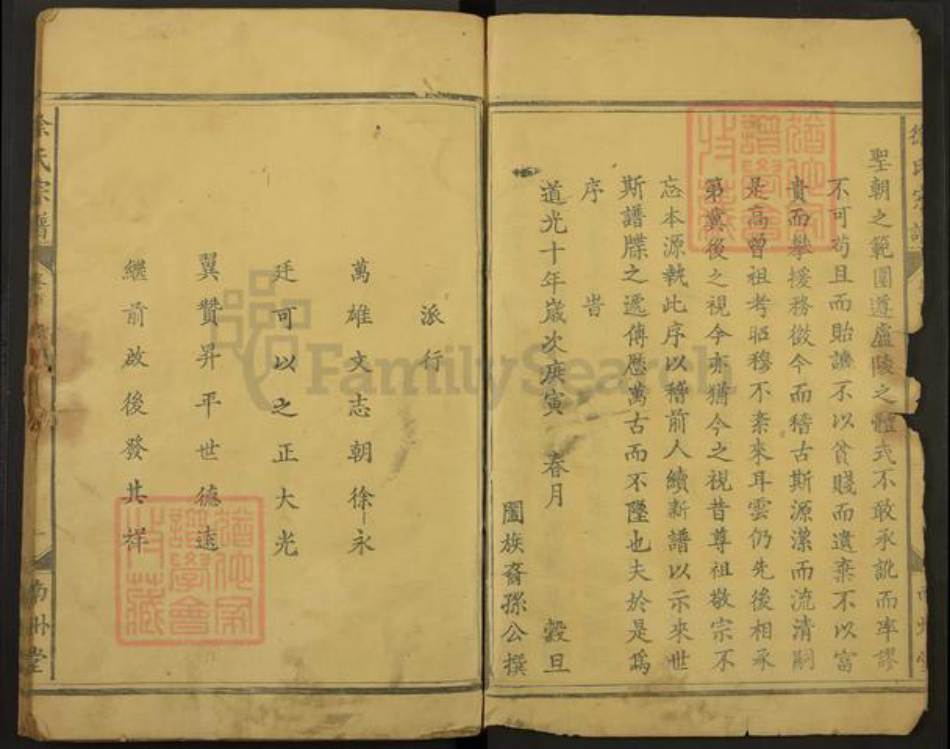 徐氏宗譜
聖朝之範圍遵廬陵之體式不敢承訛而率謬
不可苟且而貽譏不以貧賤而遺棄不以富
貴而攀援務徵今而稽古斯源潔而流清嗣
是高曾祖考昭穆不紊來耳雲仍先後相承
第冀後之視今亦猶今之視昔尊祖敬宗不
忘本源執此序以稽前人續新譜以示來世
斯譜牒之遞傳歷萬古而不墜也夫於是爲
序 旹
道光十年歲次庚寅 春月 穀旦
闔族裔孫公撰
派行
萬雄文志朝徐永
廷可以之正大光
翼贊昇平世德遠
繼前啟後發其祥
徐氏宗譜
南州堂
FamilySearch